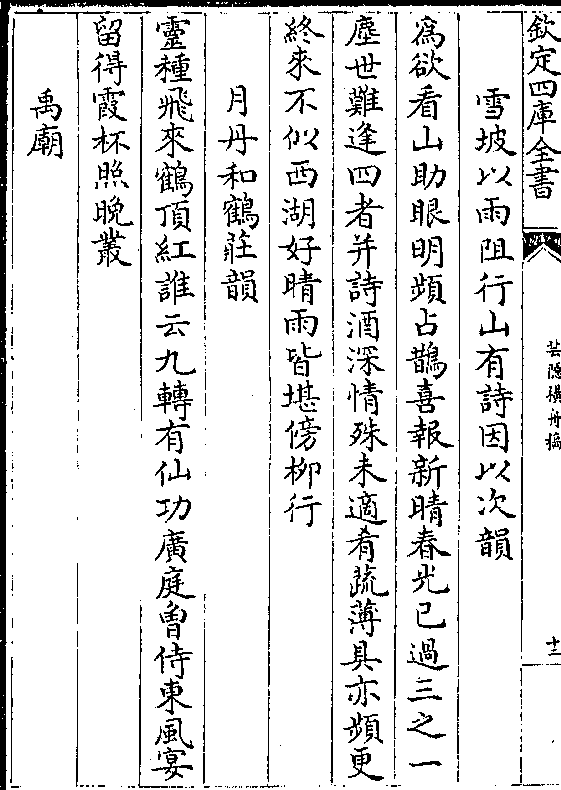 欽定四庫全書
芸隱橫舟稿
十二
雪坡以雨阻行山有詩因以次韻
爲欲看山助眼明頻占鵲喜報新晴春光已過三之一
塵世難逢四者并詩酒深情殊未適肴蔬薄具亦頻更
終來不似西湖好晴雨皆堪傍柳行
月丹和鶴莊韻
靈種飛來鶴頂紅誰云九轉有仙功廣庭曾侍東風宴
留得霞杯照晚叢
禹廟